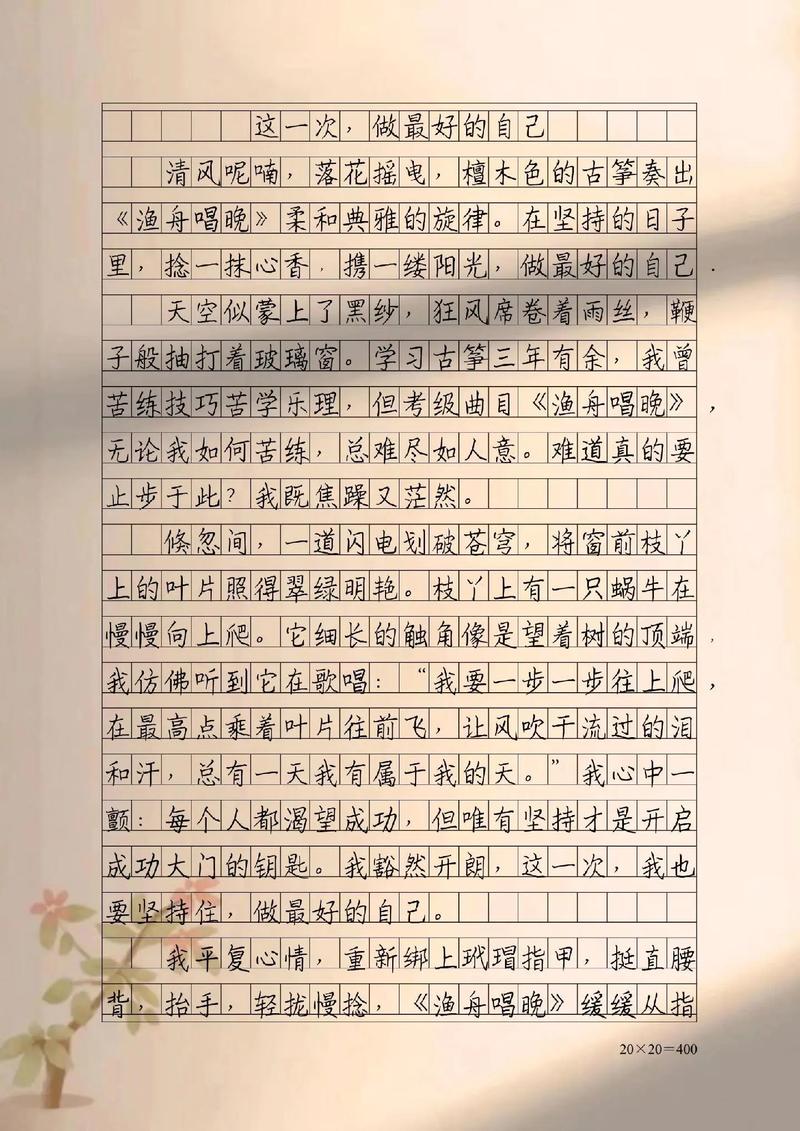 这一次，做最好的自己
清风呢喃，落花摇曳，檀木色的古筝奏出
《渔舟唱晚》柔和典雅的旋律。在坚持的日子
里，捻一抹心香，携一缕阳光，做最好的自己.
天空似蒙上了黑纱，狂风席卷着雨丝，鞭
子般抽打着玻璃窗。学习古筝三年有余，我曾
苦练技巧苦学乐理，但考级曲目《渔舟唱晚》，
无论我如何苦练，总难尽如人意。难道真的要
止步于此？我既焦躁又茫然。
倏忽间，一道闪电划破苍穹，将窗前枝丫
上的叶片照得翠绿明艳。枝丫上有一只蜗牛在
慢慢向上爬。它细长的触角像是望着树的顶端，
我仿佛听到它在歌唱：“我要一步一步往上爬，
在最高点乘着叶片往前飞，让风吹干流过的泪
和汗，总有一天我有属于我的天。”我心中一
颤：每个人都渴望成功，但唯有坚持才是开启
成功大门的钥匙。我豁然开朗，这一次，我也
要坚持住，做最好的自己。
我平复心情，重新绑上玳瑁指甲，挺直腰
背，抬手，轻拢慢捻，《渔舟唱晚》缓缓从指
20×20=400